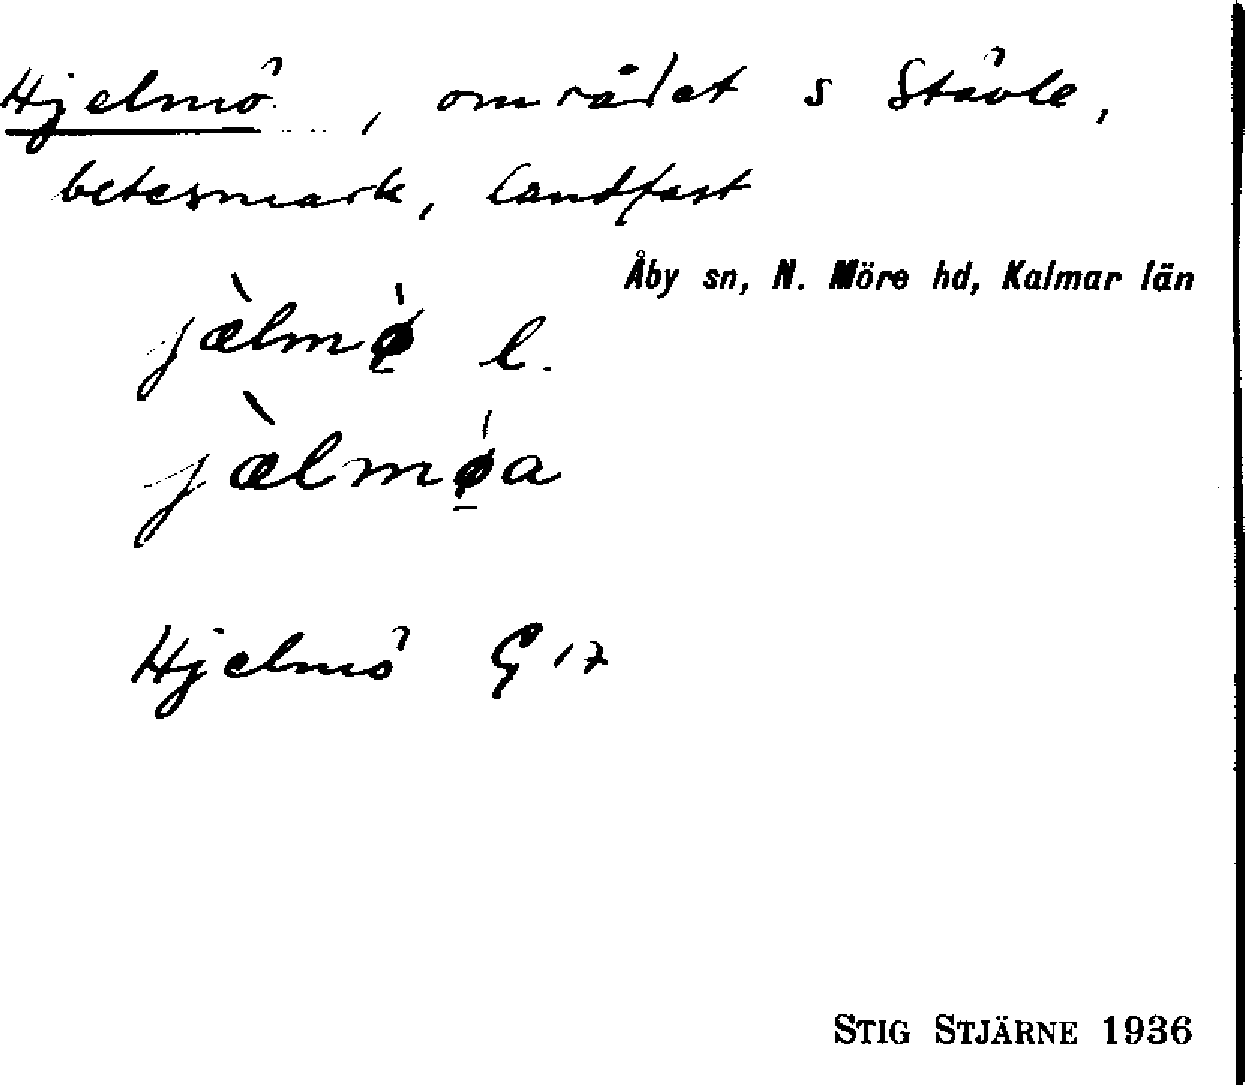 Hjelmö, området s Stävle,
betesmark, landfast
Åby sn, N. Möre hd, Kalmar län
jæ̀lmǿ l.
jæ̀lmǿa
Hjelmö G 17
STIG STJÄRNE 1936